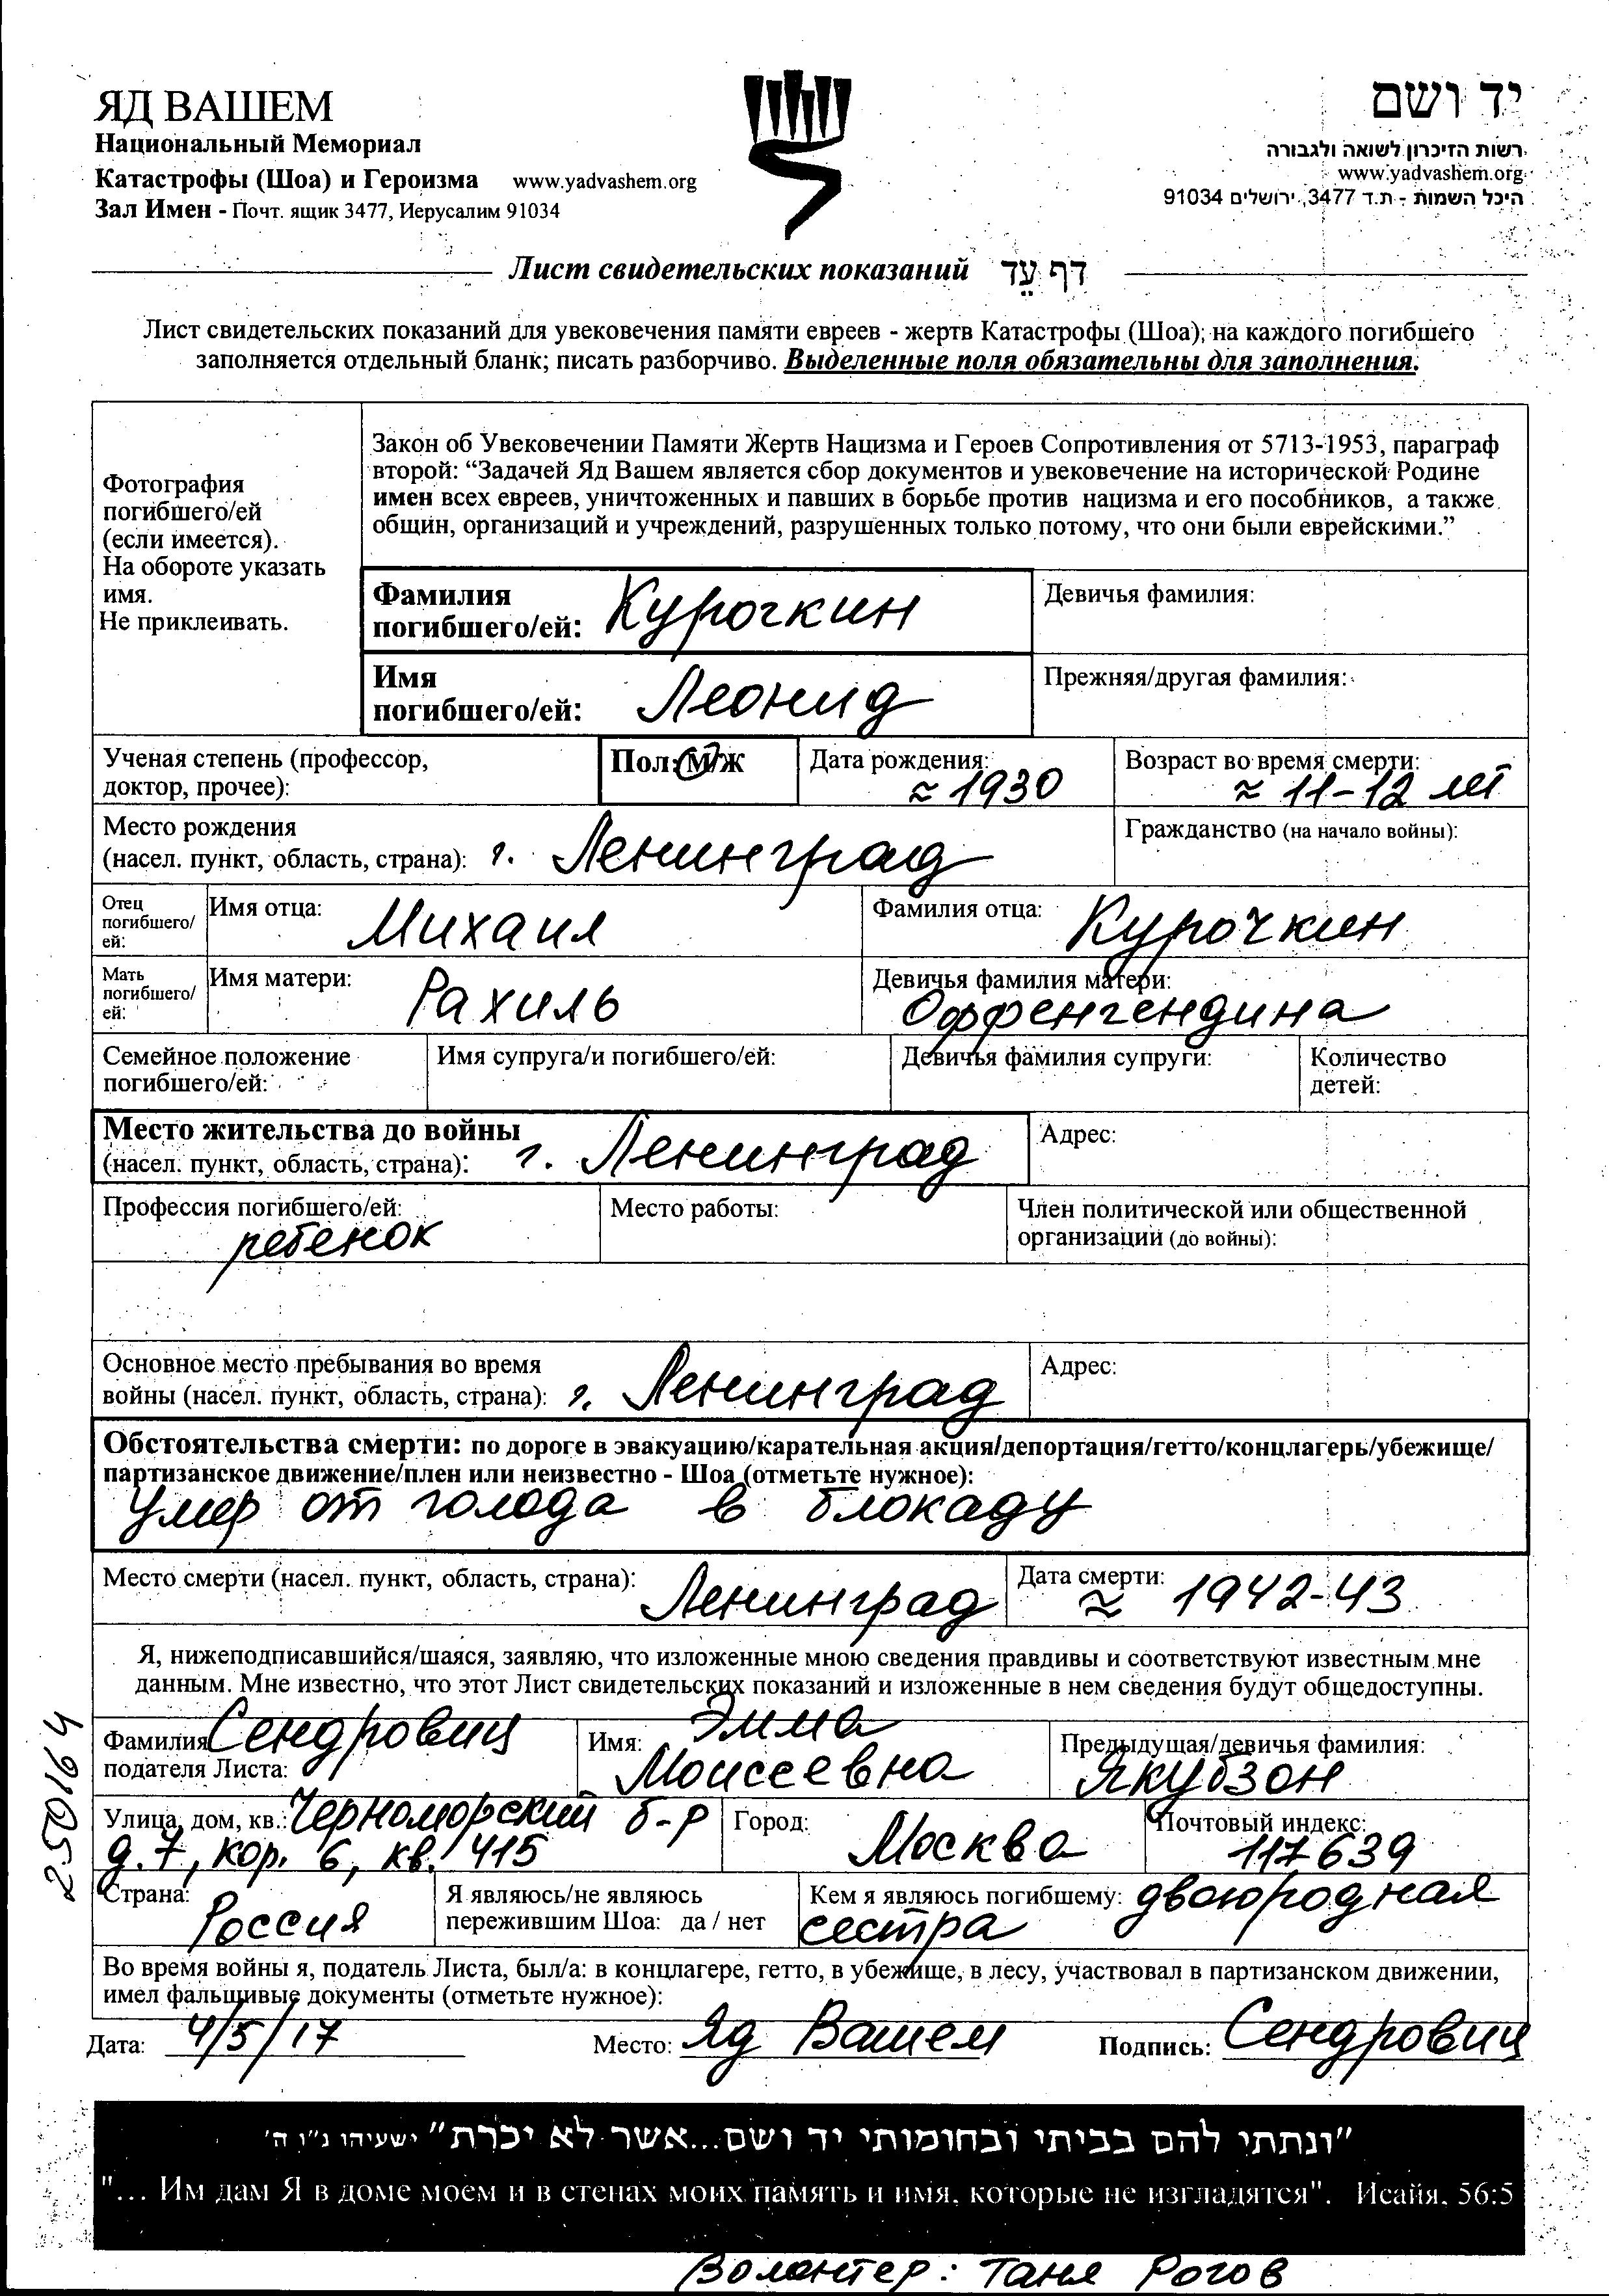 ЯД ВАШЕМ
Национальный Мемориал
Катастрофы (Шоа) и Героизма www.yadvashem.org
Зал Имен - Почт. ящик 3477, Иерусалим 91034
יד ושם
רשות הזיכרון לשואה ולגבורה
www.yadvashem.org
היכל השמות - ת.ד 3477, ירושלים 91034
Лист свидетельских показаний דף עד
Лист свидетельских показаний для увековечения памяти евреев - жертв Катастрофы (Шоа); на каждого погибшего
заполняется отдельный бланк; писать разборчиво. Выделенные поля обязательны для заполнения.
Фотография
погибшего/ей
(если имеется).
На обороте указать
имя.
Не приклеивать.
Закон об Увековечении Памяти Жертв Нацизма и Героев Сопротивления от 5713-1953, параграф
второй: “Задачей Яд Вашем является сбор документов и увековечение на исторической Родине
имен всех евреев, уничтоженных и павших в борьбе против нацизма и его пособников, а также
общин, организаций и учреждений, разрушенных только потому, что они были еврейскими.”
Фамилия
погибшего/ей: Курочкин
Девичья фамилия:
Имя
погибшего/ей: Леонид
Прежняя/другая фамилия:
Ученая степень (профессор,
доктор, прочее):
Пол: М/Ж
Дата рождения:
≈ 1930
Возраст во время смерти:
≈ 11-12 лет
Место рождения
(насел. пункт, область, страна): г. Ленинград
Гражданство (на начало войны):
Отец
погибшего/
ей:
Имя отца: Михаил
Фамилия отца: Курочкин
Мать
погибшего/
ей:
Имя матери: Рахиль
Девичья фамилия матери:
Оффенгендина
Семейное положение
погибшего/ей:
Имя супруга/и погибшего/ей:
Девичья фамилия супруги:
Количество
детей:
Место жительства до войны
(насел. пункт, область, страна): г. Ленинград
Адрес:
Профессия погибшего/ей:
ребенок
Место работы:
Член политической или общественной
организации (до войны):
Основное место пребывания во время
войны (насел. пункт, область, страна): г. Ленинград
Адрес:
Обстоятельства смерти: по дороге в эвакуацию/карательная акция/депортация/гетто/концлагерь/убежище/
партизанское движение/плен или неизвестно - Шоа (отметьте нужное):
Умер от голода в блокаду
Место смерти (насел. пункт, область, страна): Ленинград
Дата смерти:
≈ 1942-43
Я, нижеподписавшийся/шаяся, заявляю, что изложенные мною сведения правдивы и соответствуют известным мне
данным. Мне известно, что этот Лист свидетельских показаний и изложенные в нем сведения будут общедоступны.
250164
Фамилия Сендрович
подателя Листа:
Имя: Эмма
Моисеевна
Предыдущая/девичья фамилия:
Якубзон
Улица, дом, кв.: Черноморский б-р
д.7, кор. 6, кв. 415
Город: Москва
Почтовый индекс:
117639
Страна:
Россия
Я являюсь/не являюсь
пережившим Шоа: да / нет
Кем я являюсь погибшему: двоюродная
сестра
Во время войны я, податель Листа, был/а: в концлагере, гетто, в убежище, в лесу, участвовал в партизанском движении,
имел фальшивые документы (отметьте нужное):
Дата: 4/5/17 Место: Яд Вашем Подпись: Сендрович
"ונתתי להם בביתי ובחומותי יד ושם...אשר לא יכרת" ישעיהו נ"ו ה'
"... Им дам Я в доме моем и в стенах моих память и имя, которые не изгладятся". Исайя, 56:5
Волонтер: Таня Рогов